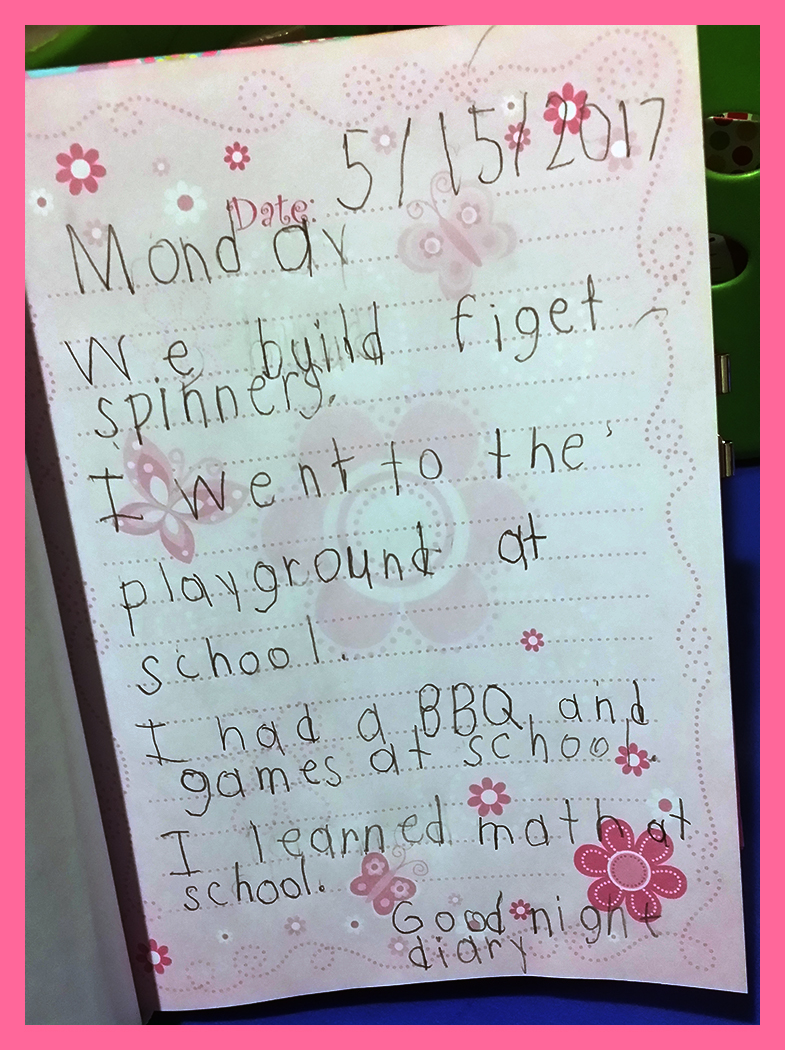 Date: 5/15/2017
Monday
We build figet
spinners.
I went to the
playground at
school.
I had a BBQ and
games at school.
I learned math at
school.
Good night
diary